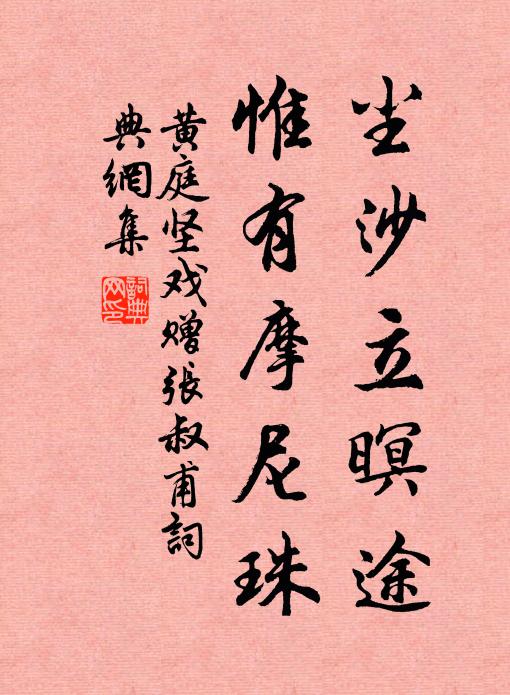 尘沙立暝途
惟有摩尼珠
黄庭坚戏赠張叔甫詞
典網集
詞典网印